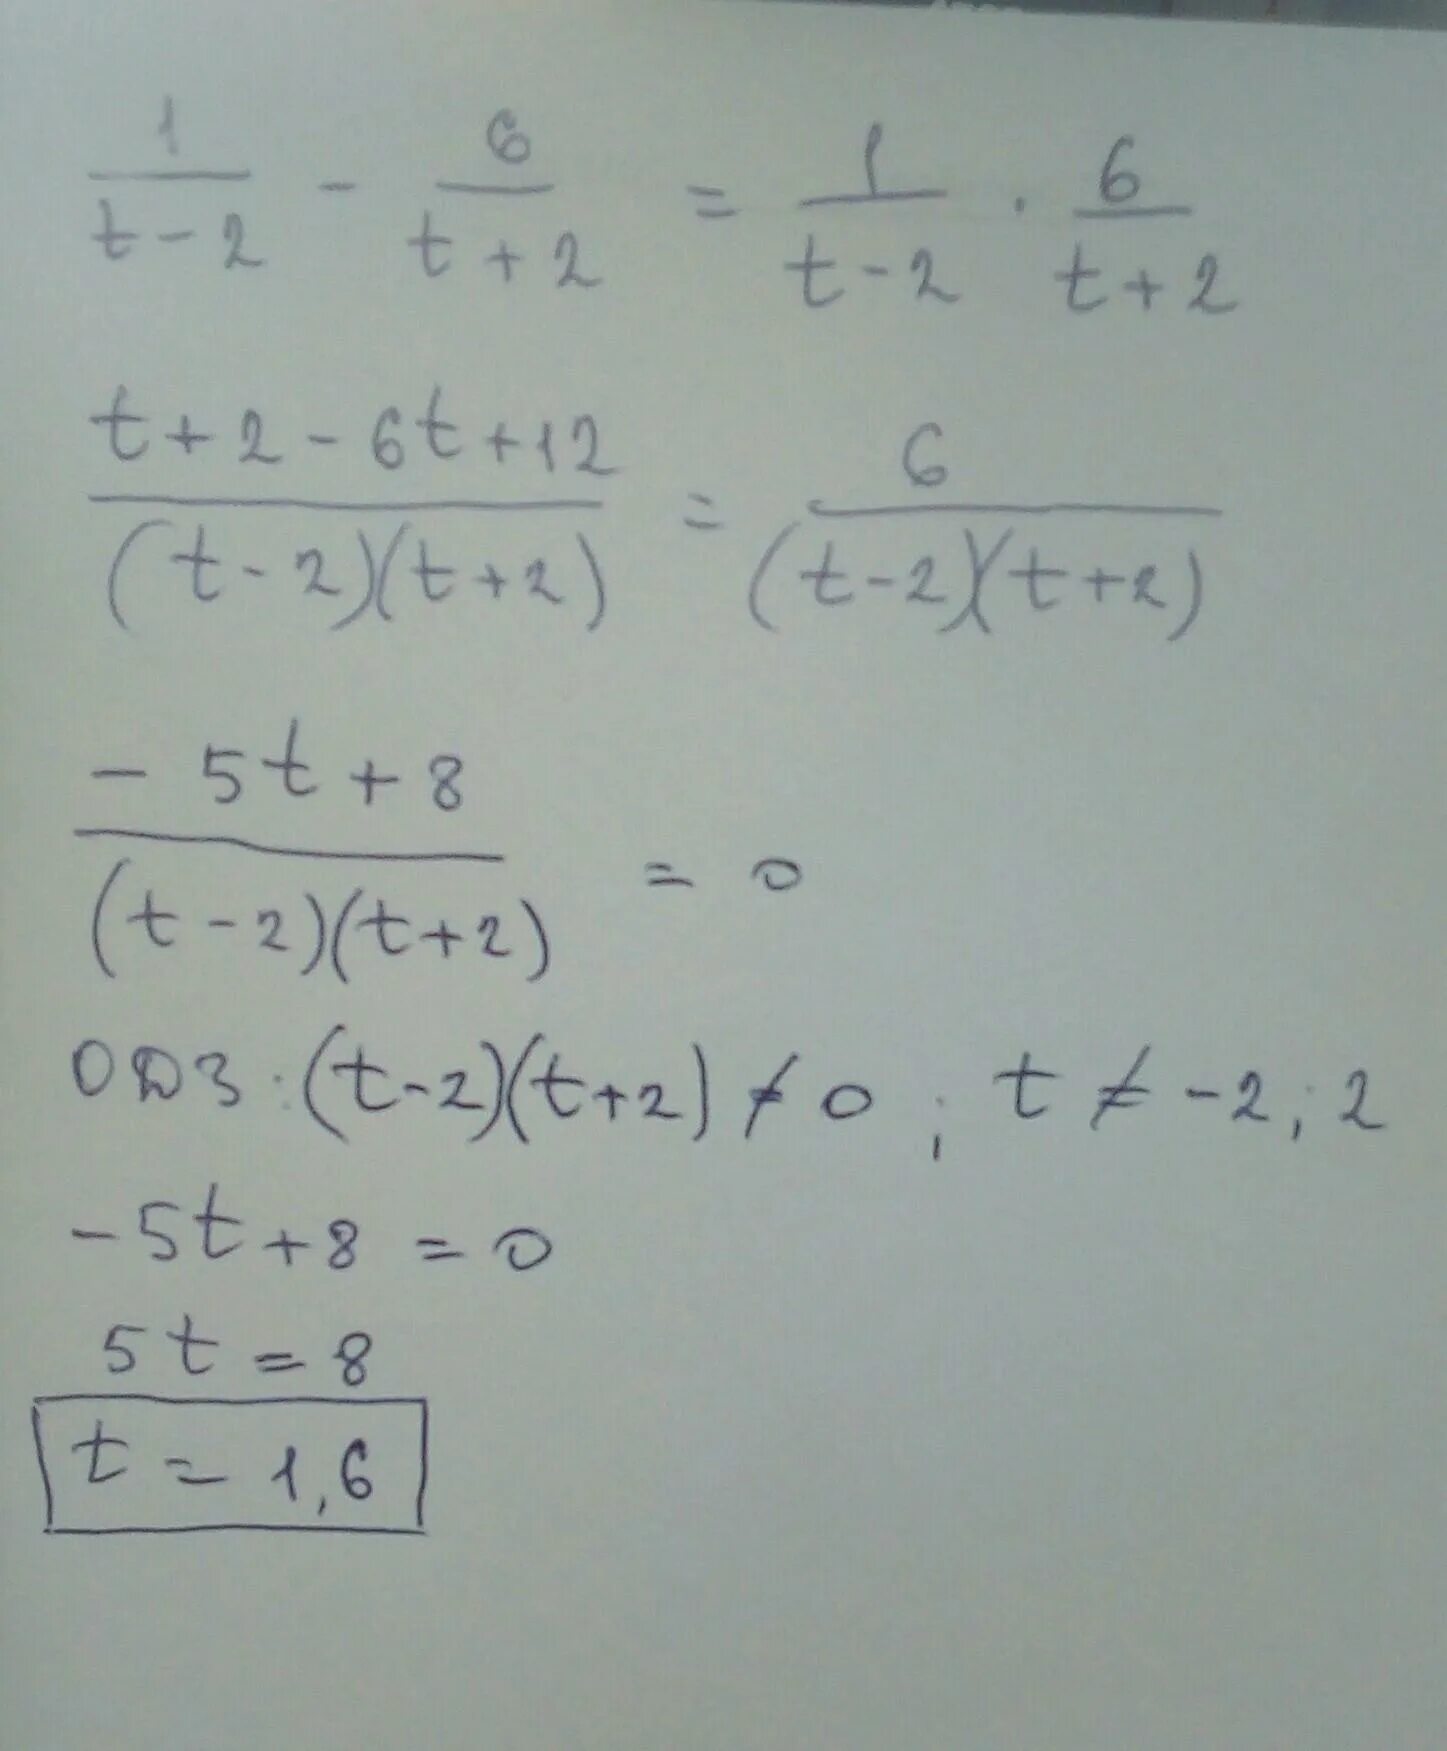 1/(t-2) - 6/(t+2) = 1/(t-2) · 6/(t+2)
(t+2-6t+12)/((t-2)(t+2)) = 6/((t-2)(t+2))
(-5t+8)/((t-2)(t+2)) = 0
ОДЗ: (t-2)(t+2) ≠ 0; t ≠ -2; 2
-5t+8 = 0
5t = 8
t = 1,6